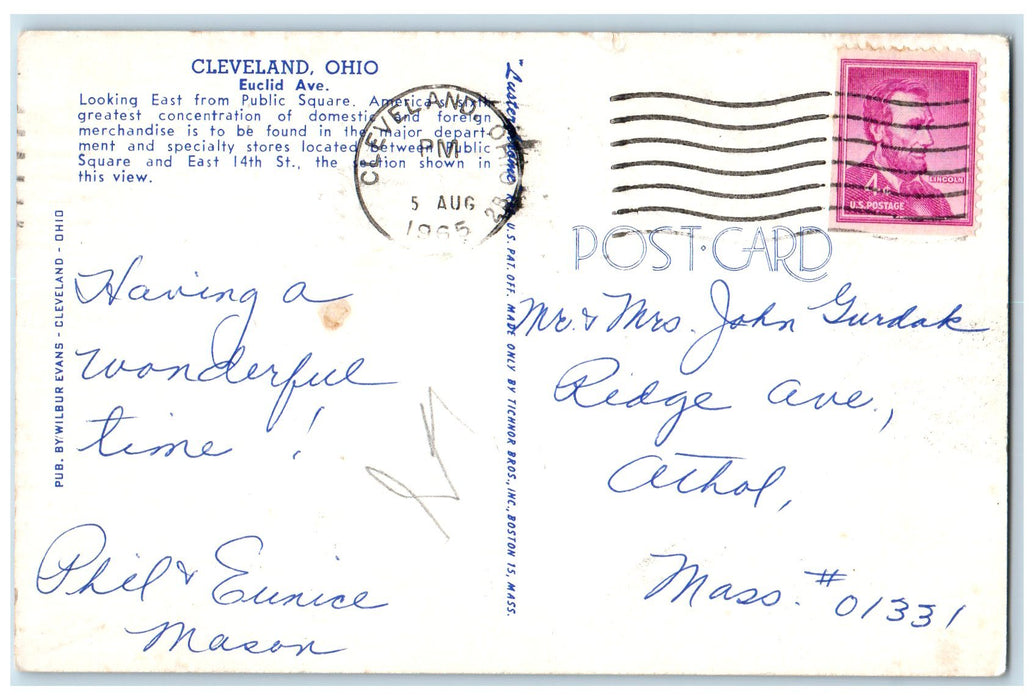 CLEVELAND, OHIO
Euclid Ave.
Looking East from Public Square. America's sixth
greatest concentration of domestic and foreign
merchandise is to be found in the major depart-
ment and specialty stores located between Public
Square and East 14th St., the section shown in
this view.
PUB. BY WILBUR EVANS - CLEVELAND - OHIO
Having a
wonderful
time!
Phil & Eunice
Mason
CLEVELAND, OHIO
PM
5 AUG
1965
U.S. PAT. OFF. MADE ONLY BY TICHNOR BROS., INC., BOSTON 15, MASS.
LINCOLN
4
U.S. POSTAGE
POST·CARD
Mr. & Mrs. John Gurdak
Ridge Ave.,
Athol,
Mass. # 01331